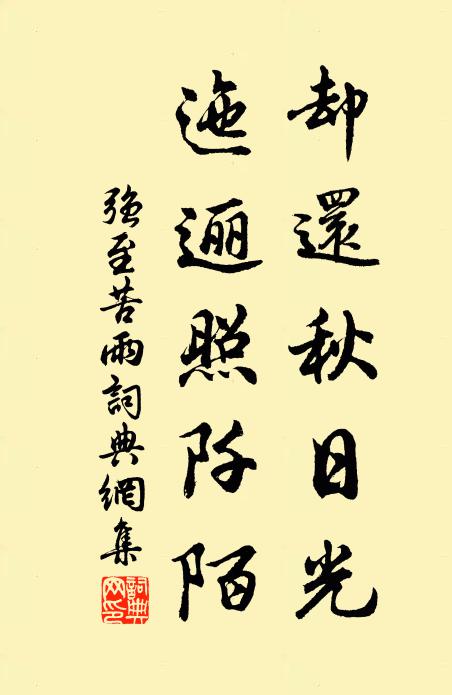 却還秋日光
迤逦照阡陌
強至苦雨詞典網集
詞典
网印